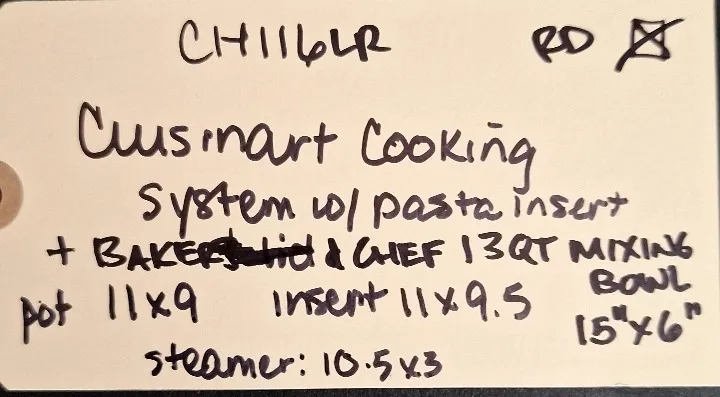 CH116LR RD
Cuisinart Cooking
System w/ pasta insert
+ BAKERS & CHEF 13QT MIXING
BOWL
pot 11x9 insert 11x9.5 15"x6"
steamer: 10.5x3